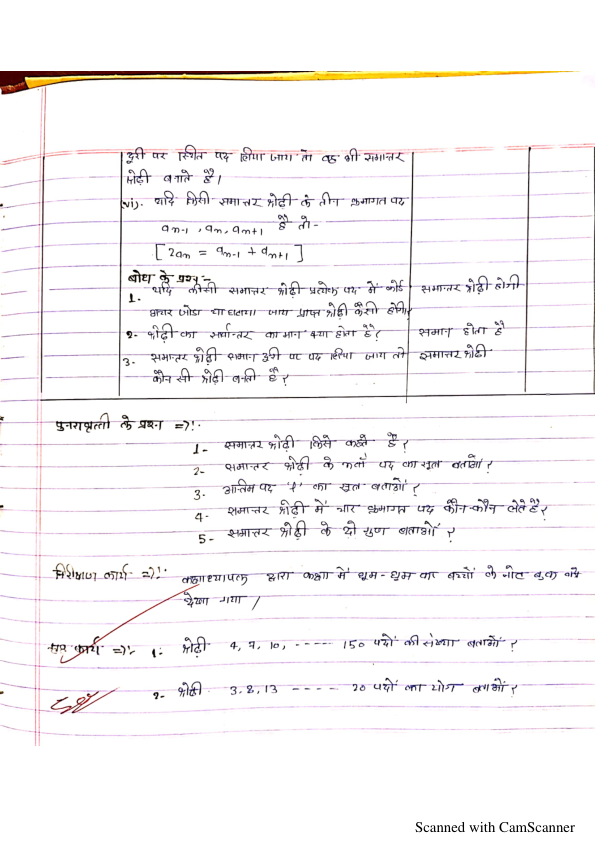 दुरी पर स्थित पद लिया जाय तो वह भी समान्तर
श्रेढ़ी बनाते हैं।
(vi). यदि किसी समान्तर श्रेढ़ी के तीन क्रमागत पद
an-1 , an, an+1 है तो-
[ 2an = an-1 + an+1 ]
बोध के प्रश्न :-
1. यदि कीसी समान्तर श्रेढ़ी प्रत्येक पद में कोई समान्तर श्रेढ़ी होगी
अचर जोडा या घटाया जाय प्राप्त श्रेढ़ी कैसी होगी?
2- श्रेढ़ी का सर्वान्तर का मान क्या होता है? समान होता है
3- समान्तर श्रेढ़ी समान दुरी पर पद लिया जाय तो समान्तर श्रेढ़ी
कौन सी श्रेढ़ी बनती है?
पुनरावृत्ती के प्रश्न =>!-
1- समान्तर श्रेढ़ी किसे कहते हैं?
2- समान्तर श्रेढ़ी के पद का सुत्र बताओं?
3. अन्तिम पद 'l' का सुत्र बताओं?
4- समान्तर श्रेढ़ी में चार क्रमागत पद कौन-कौन लेते है?
5- समान्तर श्रेढ़ी के दो गुण बताओं?
निरीक्षण कार्य =>!- कक्षाध्यापक द्वारा कक्षा में घुम-घुम कर बच्चों के नोट बुक को
देखा गया /
गृह कार्य =>!- 1. श्रेढ़ी 4, 7, 10, ----- 150 पदों की संख्या बताओं?
2- श्रेढ़ी. 3, 8, 13 ---- 20 पदों का योग बताओं?
Scanned with CamScanner